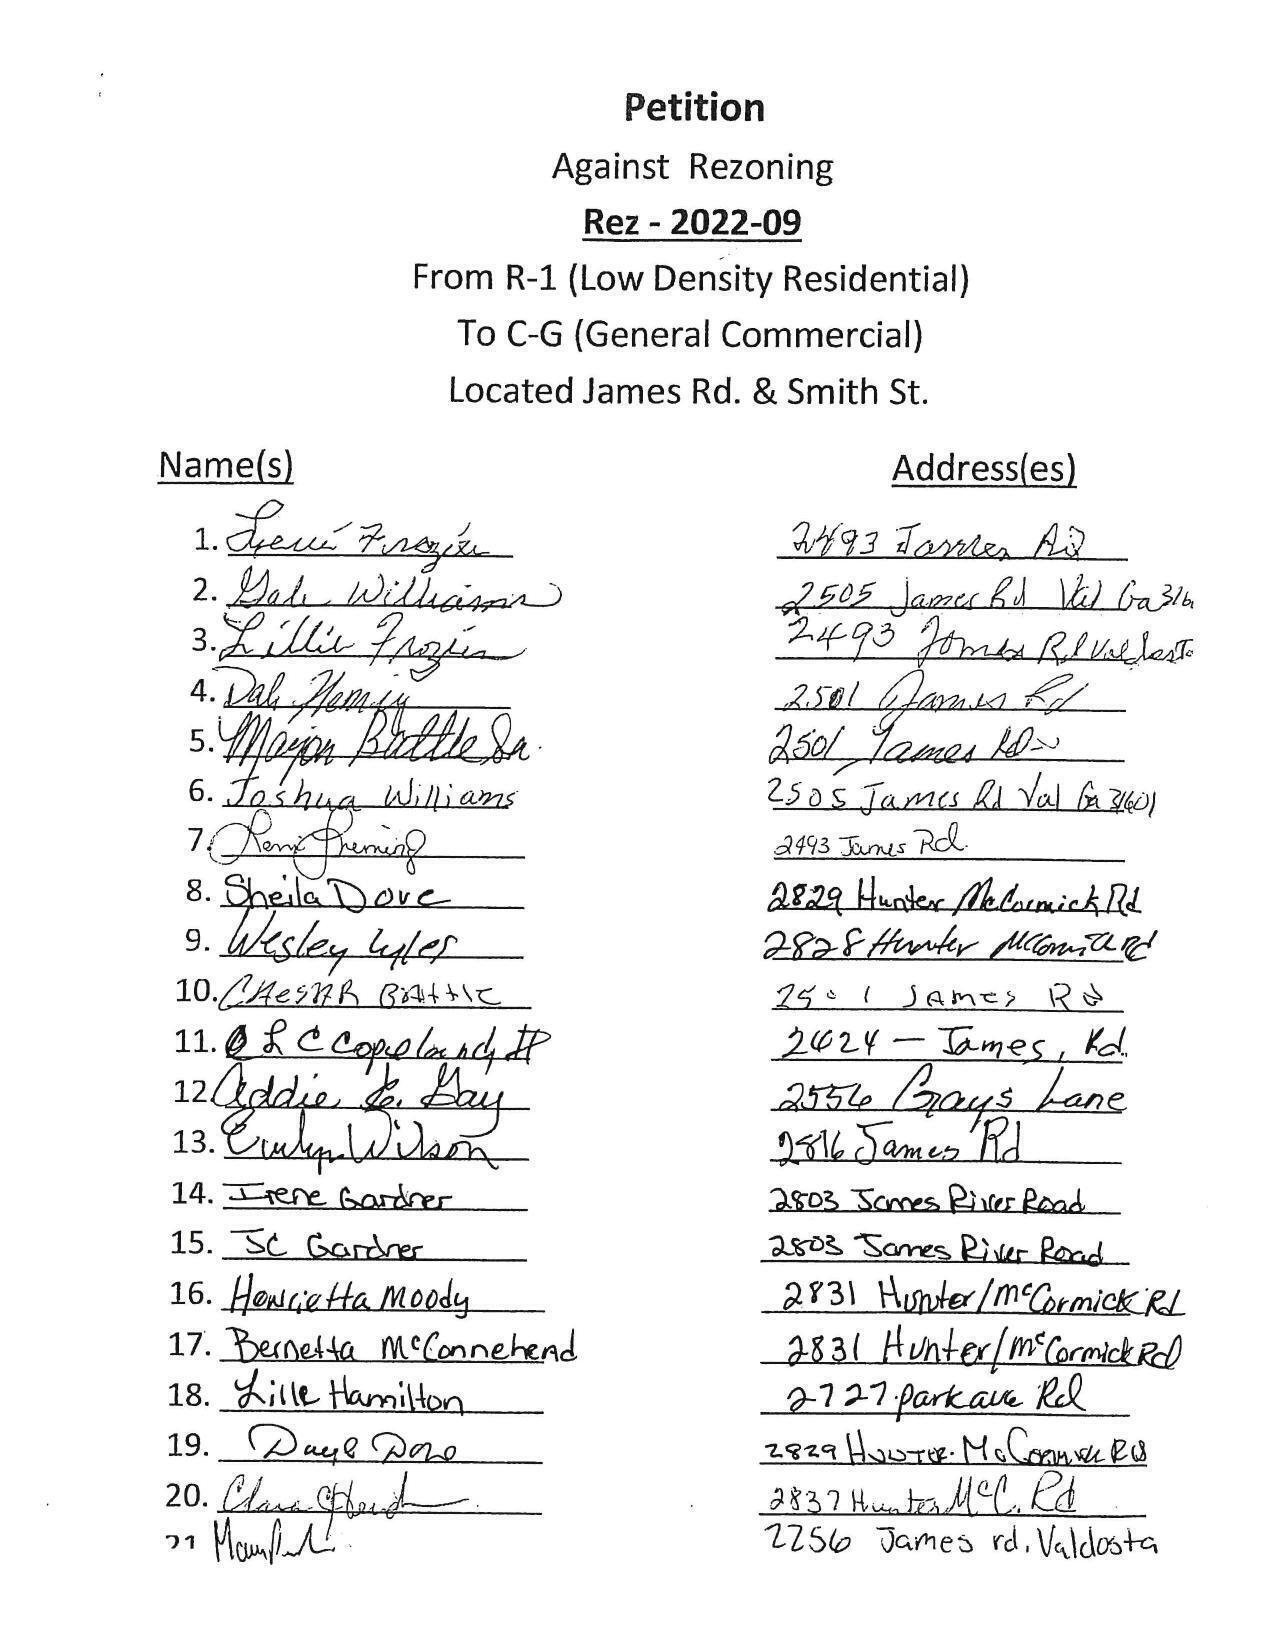 Petition
Against Rezoning
Rez - 2022-09
From R-1 (Low Density Residential)
To C-G (General Commercial)
Located James Rd. & Smith St.
Name(s) Address(es)
1. Frazier 2493 Rd
2. Gale Williams 2505 James Rd Val Ga 316
3. Lillie Frazier 2493 James Rd Valdosta
4. Dale 2501 James Rd
5. Major Battle Sr. 2501 James RD
6. Joshua Williams 2505 James Rd Val Ga 31601
7. Fleming 2493 James Rd.
8. Sheila Dove 2829 Hunter McCormick Rd
9. Wesley Lyles 2828 Hunter McCormick Rd
10. CHESAR BATTLE 2501 JAMES RD
11. L C Copeland 2424 - James, Rd.
12. Addie Gay 2556 Grays Lane
13. Evelyn Wilson 2816 James Rd
14. Irene Gardner 2803 James River Road
15. JC Gardner 2803 James River Road
16. Henrietta Moody 2831 Hunter/McCormick Rd
17. Bernetta McConnehead 2831 Hunter/McCormick Rd
18. Lille Hamilton 2727 Park ave Rd
19. 2829 Hunter McCormick RD
20. Clara 2837 Hunter McC. Rd
21 2256 James rd, Valdosta